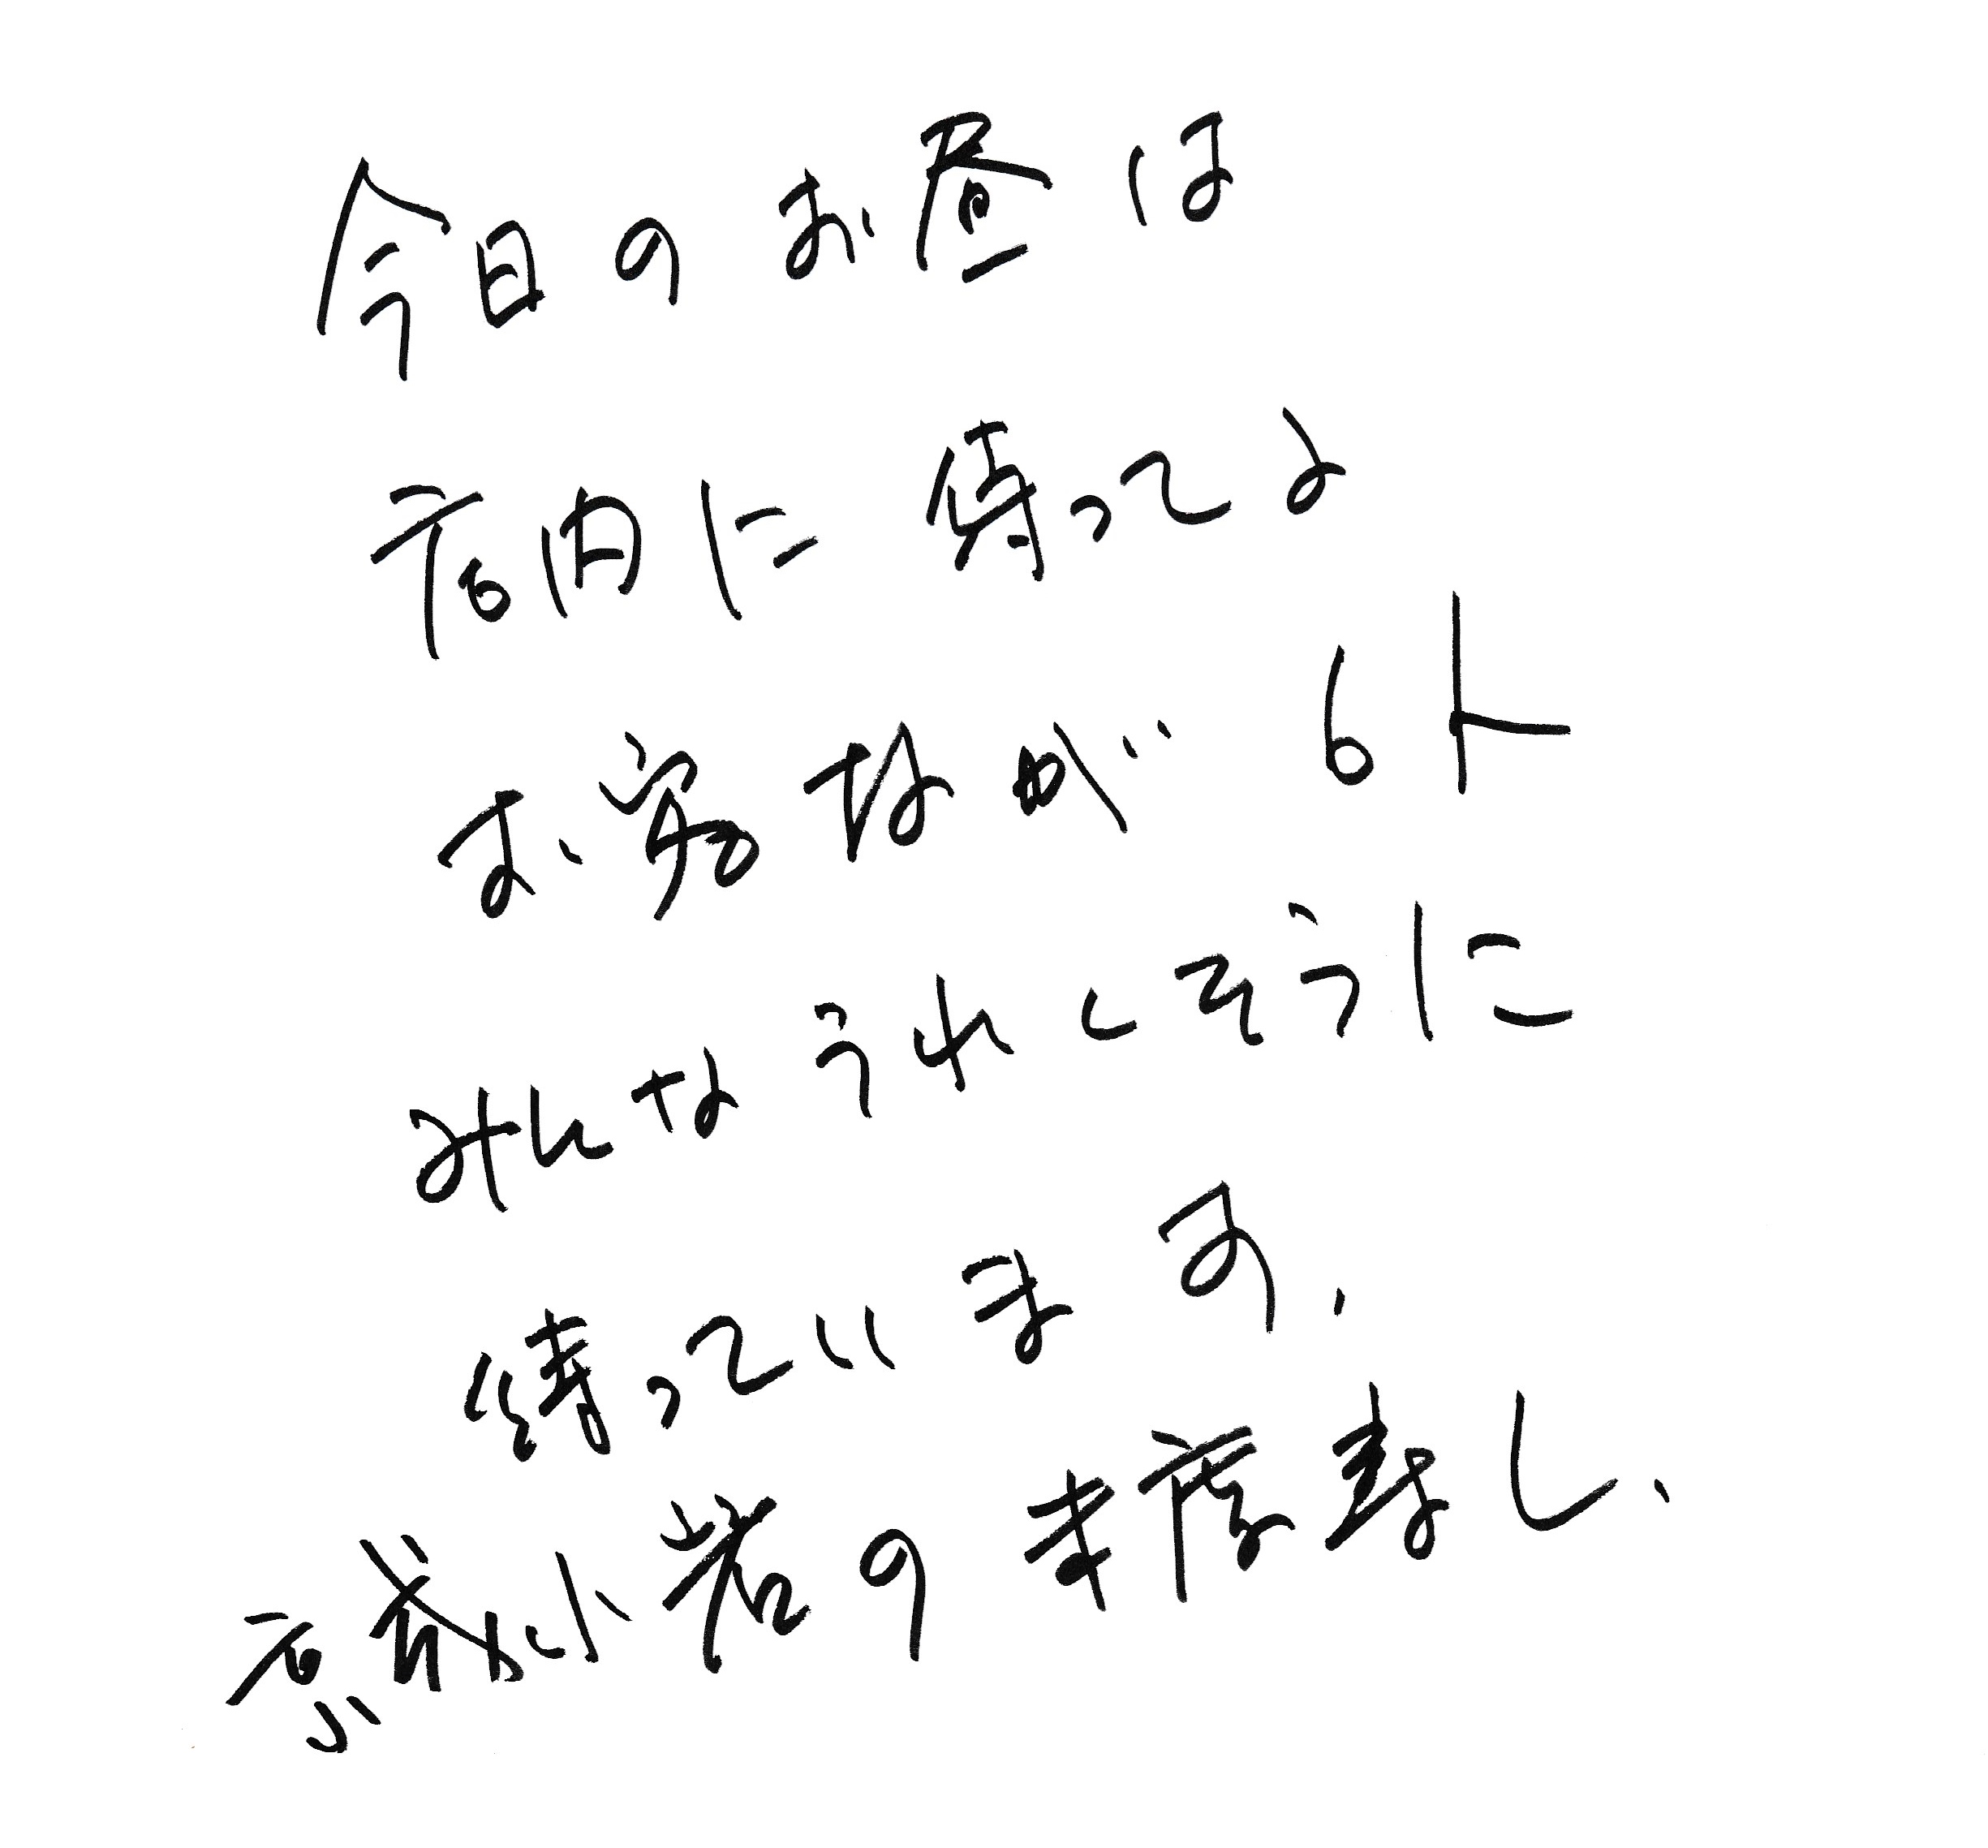 今日のお昼は
店内に 待ってよ
お客 が 6人
みんなうれしそうに
待っています.
小 の 寿し.